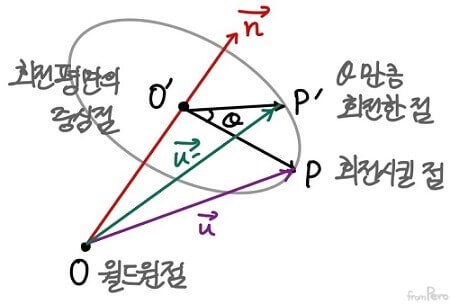 n
회전평면의
중심점
O'
P'
θ만큼
회전한 점
θ
u'
P
회전시킬 점
u
O 월드원점
from Pero